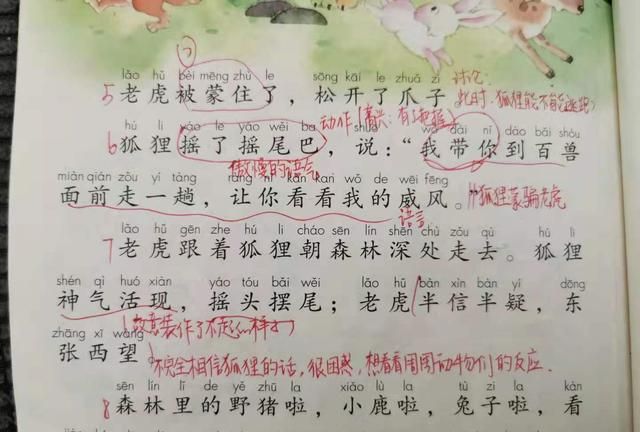 lǎo hǔ bèi mēng zhù le sōng kāi le zhuǎ zi 讨论:
5 老虎被蒙住了，松开了爪子 此时，狐狸能不能逃跑?
动作(高兴:有把握)
hú li yáo le yáo wěi ba shuō wǒ dài nǐ dào bǎi shòu
6 狐狸摇了摇尾巴，说：“我带你到百兽
傲慢的语气
miàn qián zǒu yí tàng ràng nǐ kàn kan wǒ de wēi fēng
面前走一趟，让你看看我的威风。” 狐狸蒙骗老虎
语言
lǎo hǔ gēn zhe hú li cháo sēn lín shēn chù zǒu qù hú li
7 老虎跟着狐狸朝森林深处走去。狐狸
shén qì huó xiàn yáo tóu bǎi wěi lǎo hǔ bàn xìn bàn yí dōng
神气活现，摇头摆尾；老虎半信半疑，东
(故意装作了不起的样子)
zhāng xī wàng
张西望 不完全相信狐狸的话，很困惑，想看看周围动物们的反应.
sēn lín lǐ de yě zhū la xiǎo lù la tù zi la kàn
8 森林里的野猪啦，小鹿啦，兔子啦，看